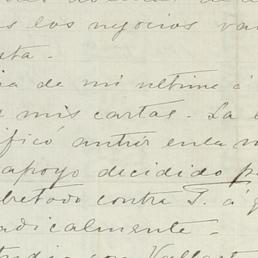 s los negocios va
sta.
ia de mi ultima á
e mis cartas. La
ificó antier en la
apoyo decidido p
bretodo contra T. á
adicalmente.